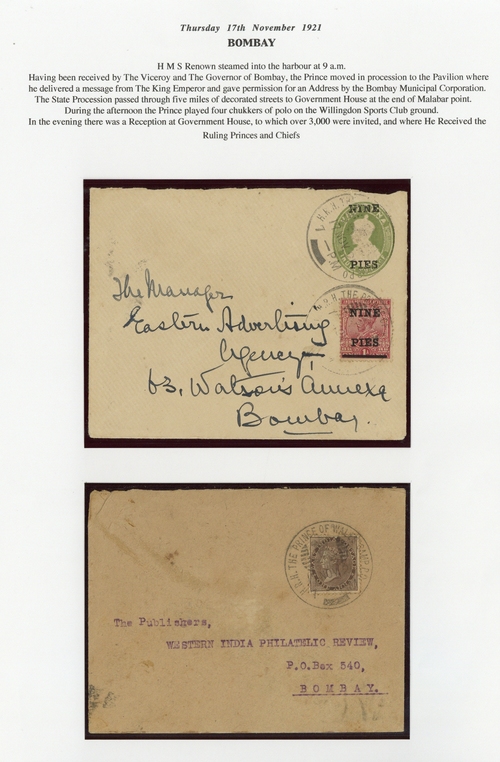 Thursday 17th November 1921
BOMBAY
H M S Renown steamed into the harbour at 9 a.m.
Having been received by The Viceroy and The Governor of Bombay, the Prince moved in procession to the Pavilion where
he delivered a message from The King Emperor and gave permission for an Address by the Bombay Municipal Corporation.
The State Procession passed through five miles of decorated streets to Government House at the end of Malabar point.
During the afternoon the Prince played four chukkers of polo on the Willingdon Sports Club ground.
In the evening there was a Reception at Government House, to which over 3,000 were invited, and where He Received the
Ruling Princes and Chiefs
NINE
PIES
H. THE
NINE
PIES
The Manager
Eastern Advertising
Agency
63, Watson's Annexe
Bombay.
H.R.H. THE PRINCE OF WALES CAMP P.O.
The Publishers,
WESTERN INDIA PHILATELIC REVIEW,
P.O.Box 540,
BOMBAY.